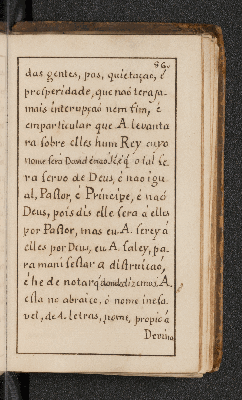 86.
das gentes, pas, quietação, é
prosperidade, que naõ tera ja-
mais interupçaõ nem fim, é
em particular que A. levanta
ra sobre elles hum Rey cuyo
nome sera David é q o tal se
ra servo de Deus, é naõ igu-
al, Pastor, é Principe, é naõ
Deus, pois dis elle sera á elles
por Pastor, mas eu A. serey á
elles por Deus, eu A. faley, pa-
ra manifestar a distruicaõ,
é he de notar q donde dizemos A.
esta no abraico, o nome inefa
vel, de 4. letras, nome, propio á
Devino